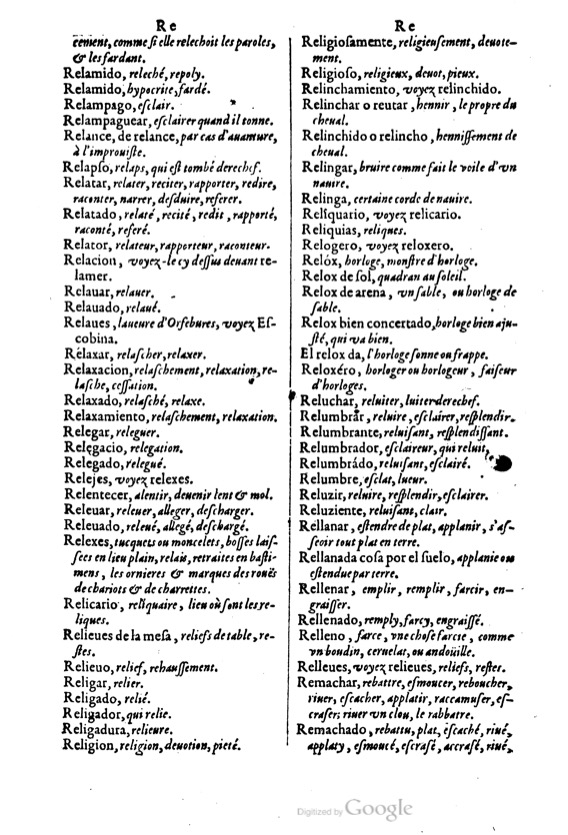 Re
cement, comme si elle relechoit les paroles,
& les fardant.
Relamido, releché, repoly.
Relamido, hypocrite, fardé.
Relampago, esclair.
Relampaguear, esclairer quand il tonne.
Relance, de relance, par cas d'auamure,
à l'improuiste.
Relapso, relaps, qui est tombé derechef.
Relatar, relater, reciter, rapporter, redire,
raconter, narrer, desduire, referer.
Relatado, relaté, recité, redit, rapporté,
raconté, referé.
Relator, relateur, rapporteur, raconteur.
Relacion, voyez-le cy dessus deuant re-
lamer.
Relauar, relauer.
Relauado, relaué.
Relaues, laueure d'Orfebures, voyez Es-
cobina.
Relaxar, relascher, relaxer.
Relaxacion, relaschement, relaxation, re-
lasche, cessation.
Relaxado, relasché, relaxe.
Relaxamiento, relaschement, relaxation.
Relegar, releguer.
Relegacio, relegation.
Relegado, relegué.
Relejes, voyez relexes.
Relentecer, alentir, deuenir lent & mol.
Releuar, releuer, alleger, descharger.
Releuado, releué, allegé, deschargé.
Relexes, tucquets ou moncelets, bosses lais-
sees en lieu plain, relais, retraites en basti-
mens, les ornieres & marques des rouës
de chariots & de charrettes.
Relicario, reliquaire, lieu où sont les re-
liques.
Relieues de la mesa, reliefs de table, re-
stes.
Relieuo, relief, rehaussement.
Religar, relier.
Religado, relié.
Religador, qui relie.
Religadura, relieure.
Religion, religion, deuotion, pieté.
Re
Religiosamente, religieusement, deuote-
ment.
Religioso, religieux, deuot, pieux.
Relinchamiento, voyez relinchido.
Relinchar o reutar, hennir, le propre du
cheual.
Relinchido o relincho, hennissement de
cheual.
Relingar, bruire comme fait le voile d'vn
nauire.
Relinga, certaine corde de nauire.
Reliquario, voyez relicario.
Reliquias, reliques.
Relogero, voyez reloxero.
Relóx, horloge, monstre d'horloge.
Relox de sol, quadran au soleil.
Relox de arena, vn sable, ou horloge de
sable.
Relox bien concertado, horloge bien aju-
sté, qui va bien.
El relox da, l'horloge sonne ou frappe.
Reloxéro, horloger ou horlogeur, faiseur
d'horloges.
Reluchar, reluiter, luiter derechef.
Relumbrar, reluire, esclairer, resplendir.
Relumbrante, reluisant, resplendissant.
Relumbrador, esclaireur, qui reluit,
Relumbrádo, reluisant, esclairé.
Relumbre, esclat, lueur.
Reluzir, reluire, resplendir, esclairer.
Reluziente, reluisant, clair.
Rellanar, estendre de plat, applanir, s'as-
seoir tout plat en terre.
Rellanada cosa por el suelo, applanie ou
estendue par terre.
Rellenar, emplir, remplir, farcir, en-
graisser.
Rellenado, remply, farcy, engraissé.
Relleno, farce, vne chose farcie, comme
vn boudin, ceruelat, ou andoüille.
Relleues, voyez relieues, reliefs, restes.
Remachar, rebattre, esmoucer, reboucher,
riuer, escacher, applatir, raccamuser, es-
craser; riuer vn clou, le rabbatre.
Remachado, rebattu, plat, escaché, riué,
applaty, esmoucé, escrasé, accrasé, riué,
Digitized by Google